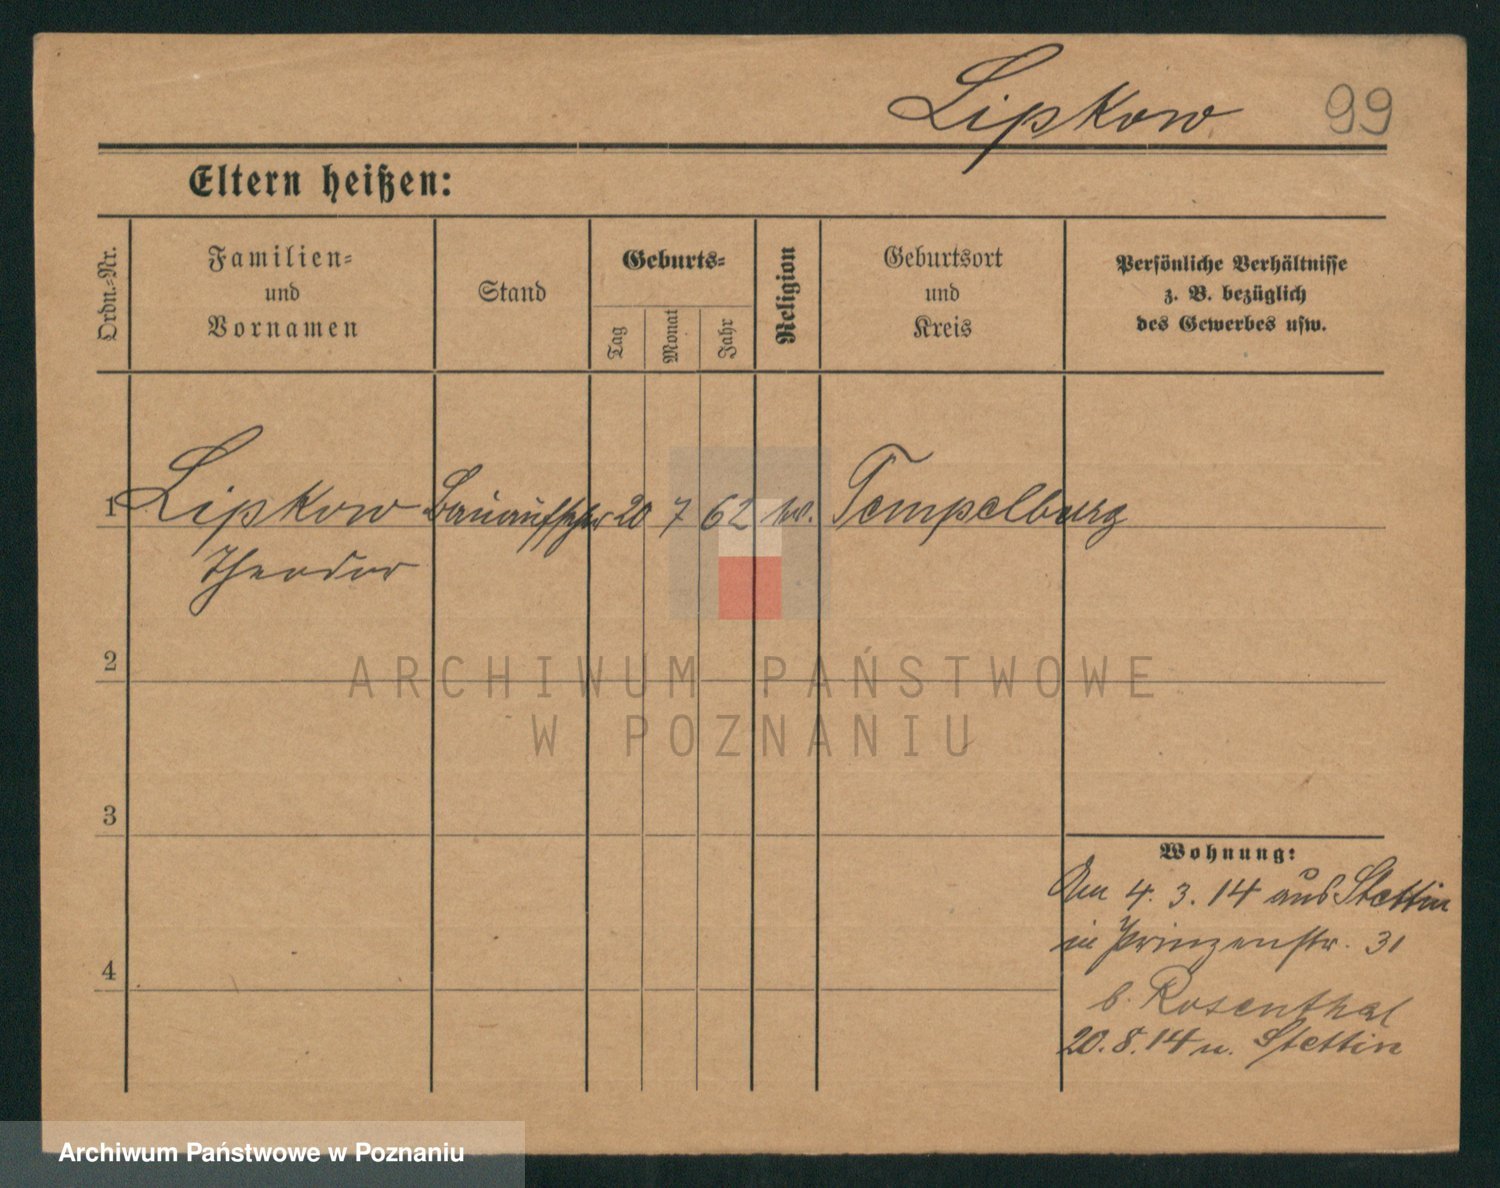 Lipkow 99
Eltern heißen:
Ordn.-Nr.
Familien-
und
Vornamen
Stand
Geburts-
Tag
Monat
Jahr
Religion
Geburtsort
und
Kreis
Persönliche Verhältnisse
z. B. bezüglich
des Gewerbes usw.
1 Lipkow Bauaufseher 20 7 62 ev. Tempelburg
Theodor
2
3
4
Wohnung:
Am 4. 3. 14 aus Stettin
in Prinzenstr. 31
b. Rosenthal
20. 8. 14 n. Stettin
ARCHIWUM PAŃSTWOWE
W POZNANIU
Archiwum Państwowe w Poznaniu